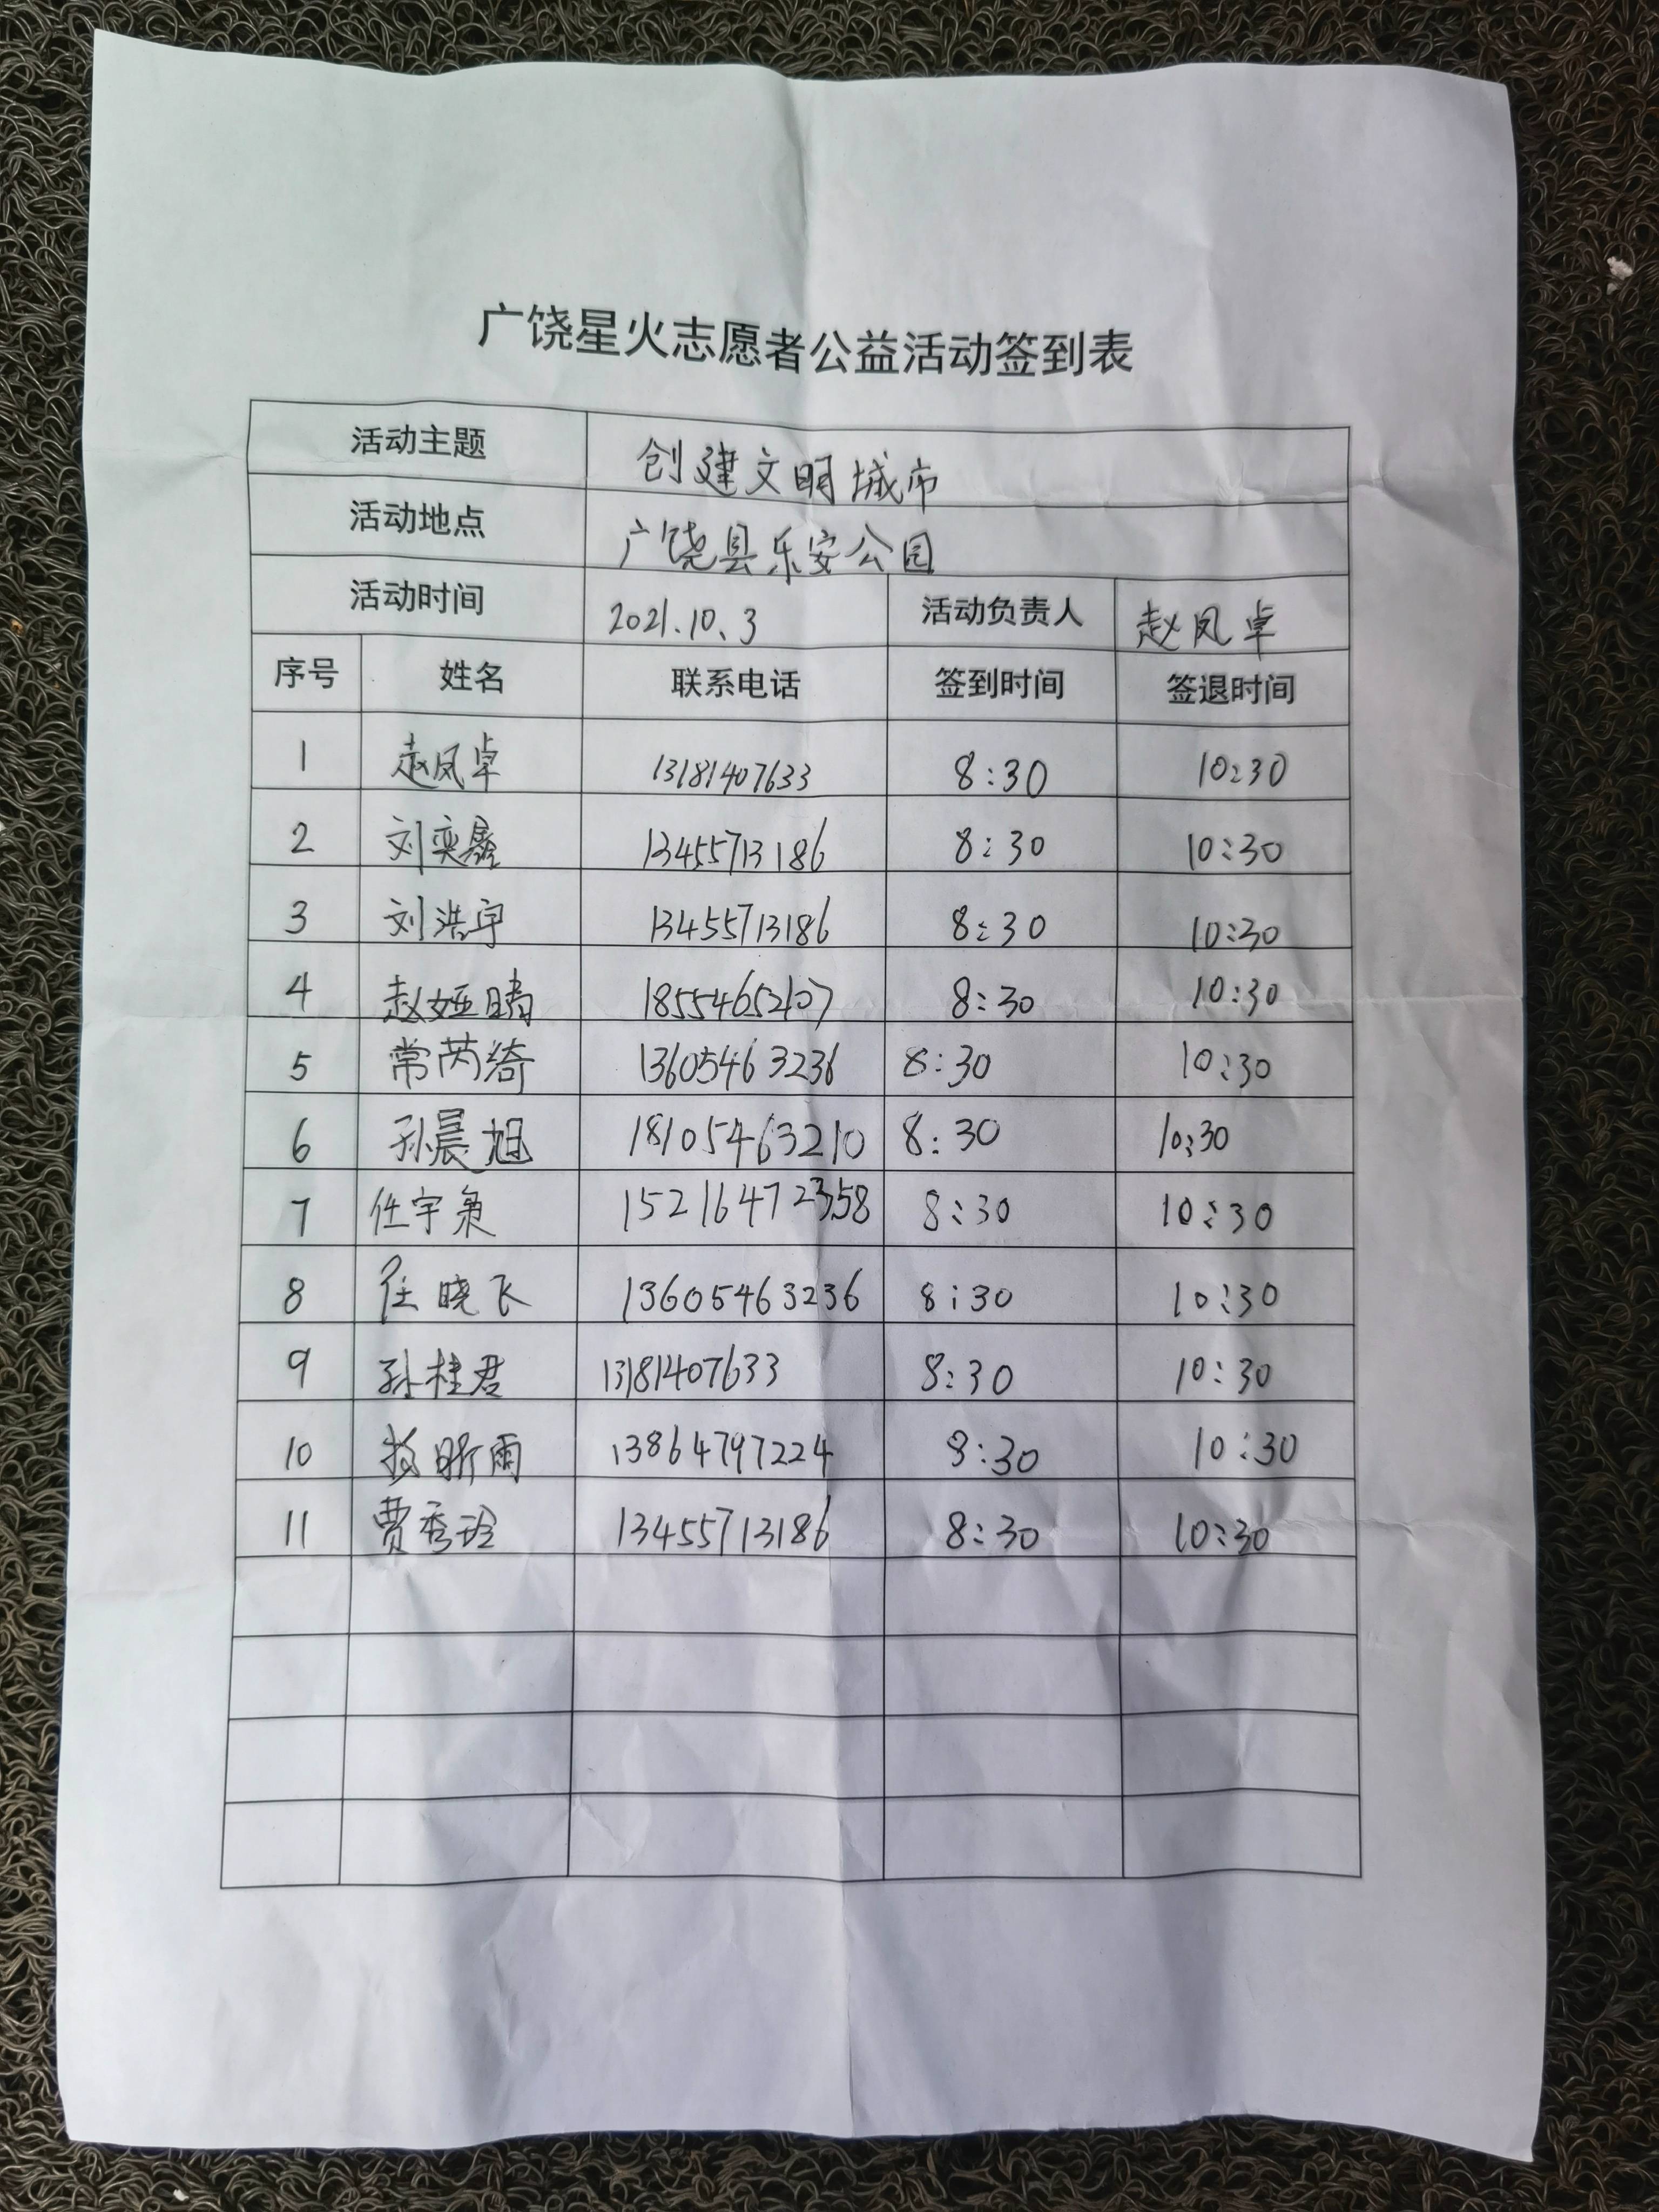 广饶星火志愿者公益活动签到表
活动主题 创建文明城市
活动地点 广饶县乐安公园
活动时间 2021.10.3 活动负责人 赵凤卓
序号 姓名 联系电话 签到时间 签退时间
1 赵凤卓 13181407633 8:30 10:30
2 刘奕 13455713186 8:30 10:30
3 刘浩宇 13455713186 8:30 10:30
4 赵娅晴 18554652107 8:30 10:30
5 常芮绮 13605463236 8:30 10:30
6 孙晨旭 18105463210 8:30 10:30
7 任宇 8:30 10:30
8 任晓飞 13605463236 8:30 10:30
9 孙桂君 13181407633 8:30 10:30
10 昕雨 13864797224 8:30 10:30
11 贾秀玲 13455713186 8:30 10:30